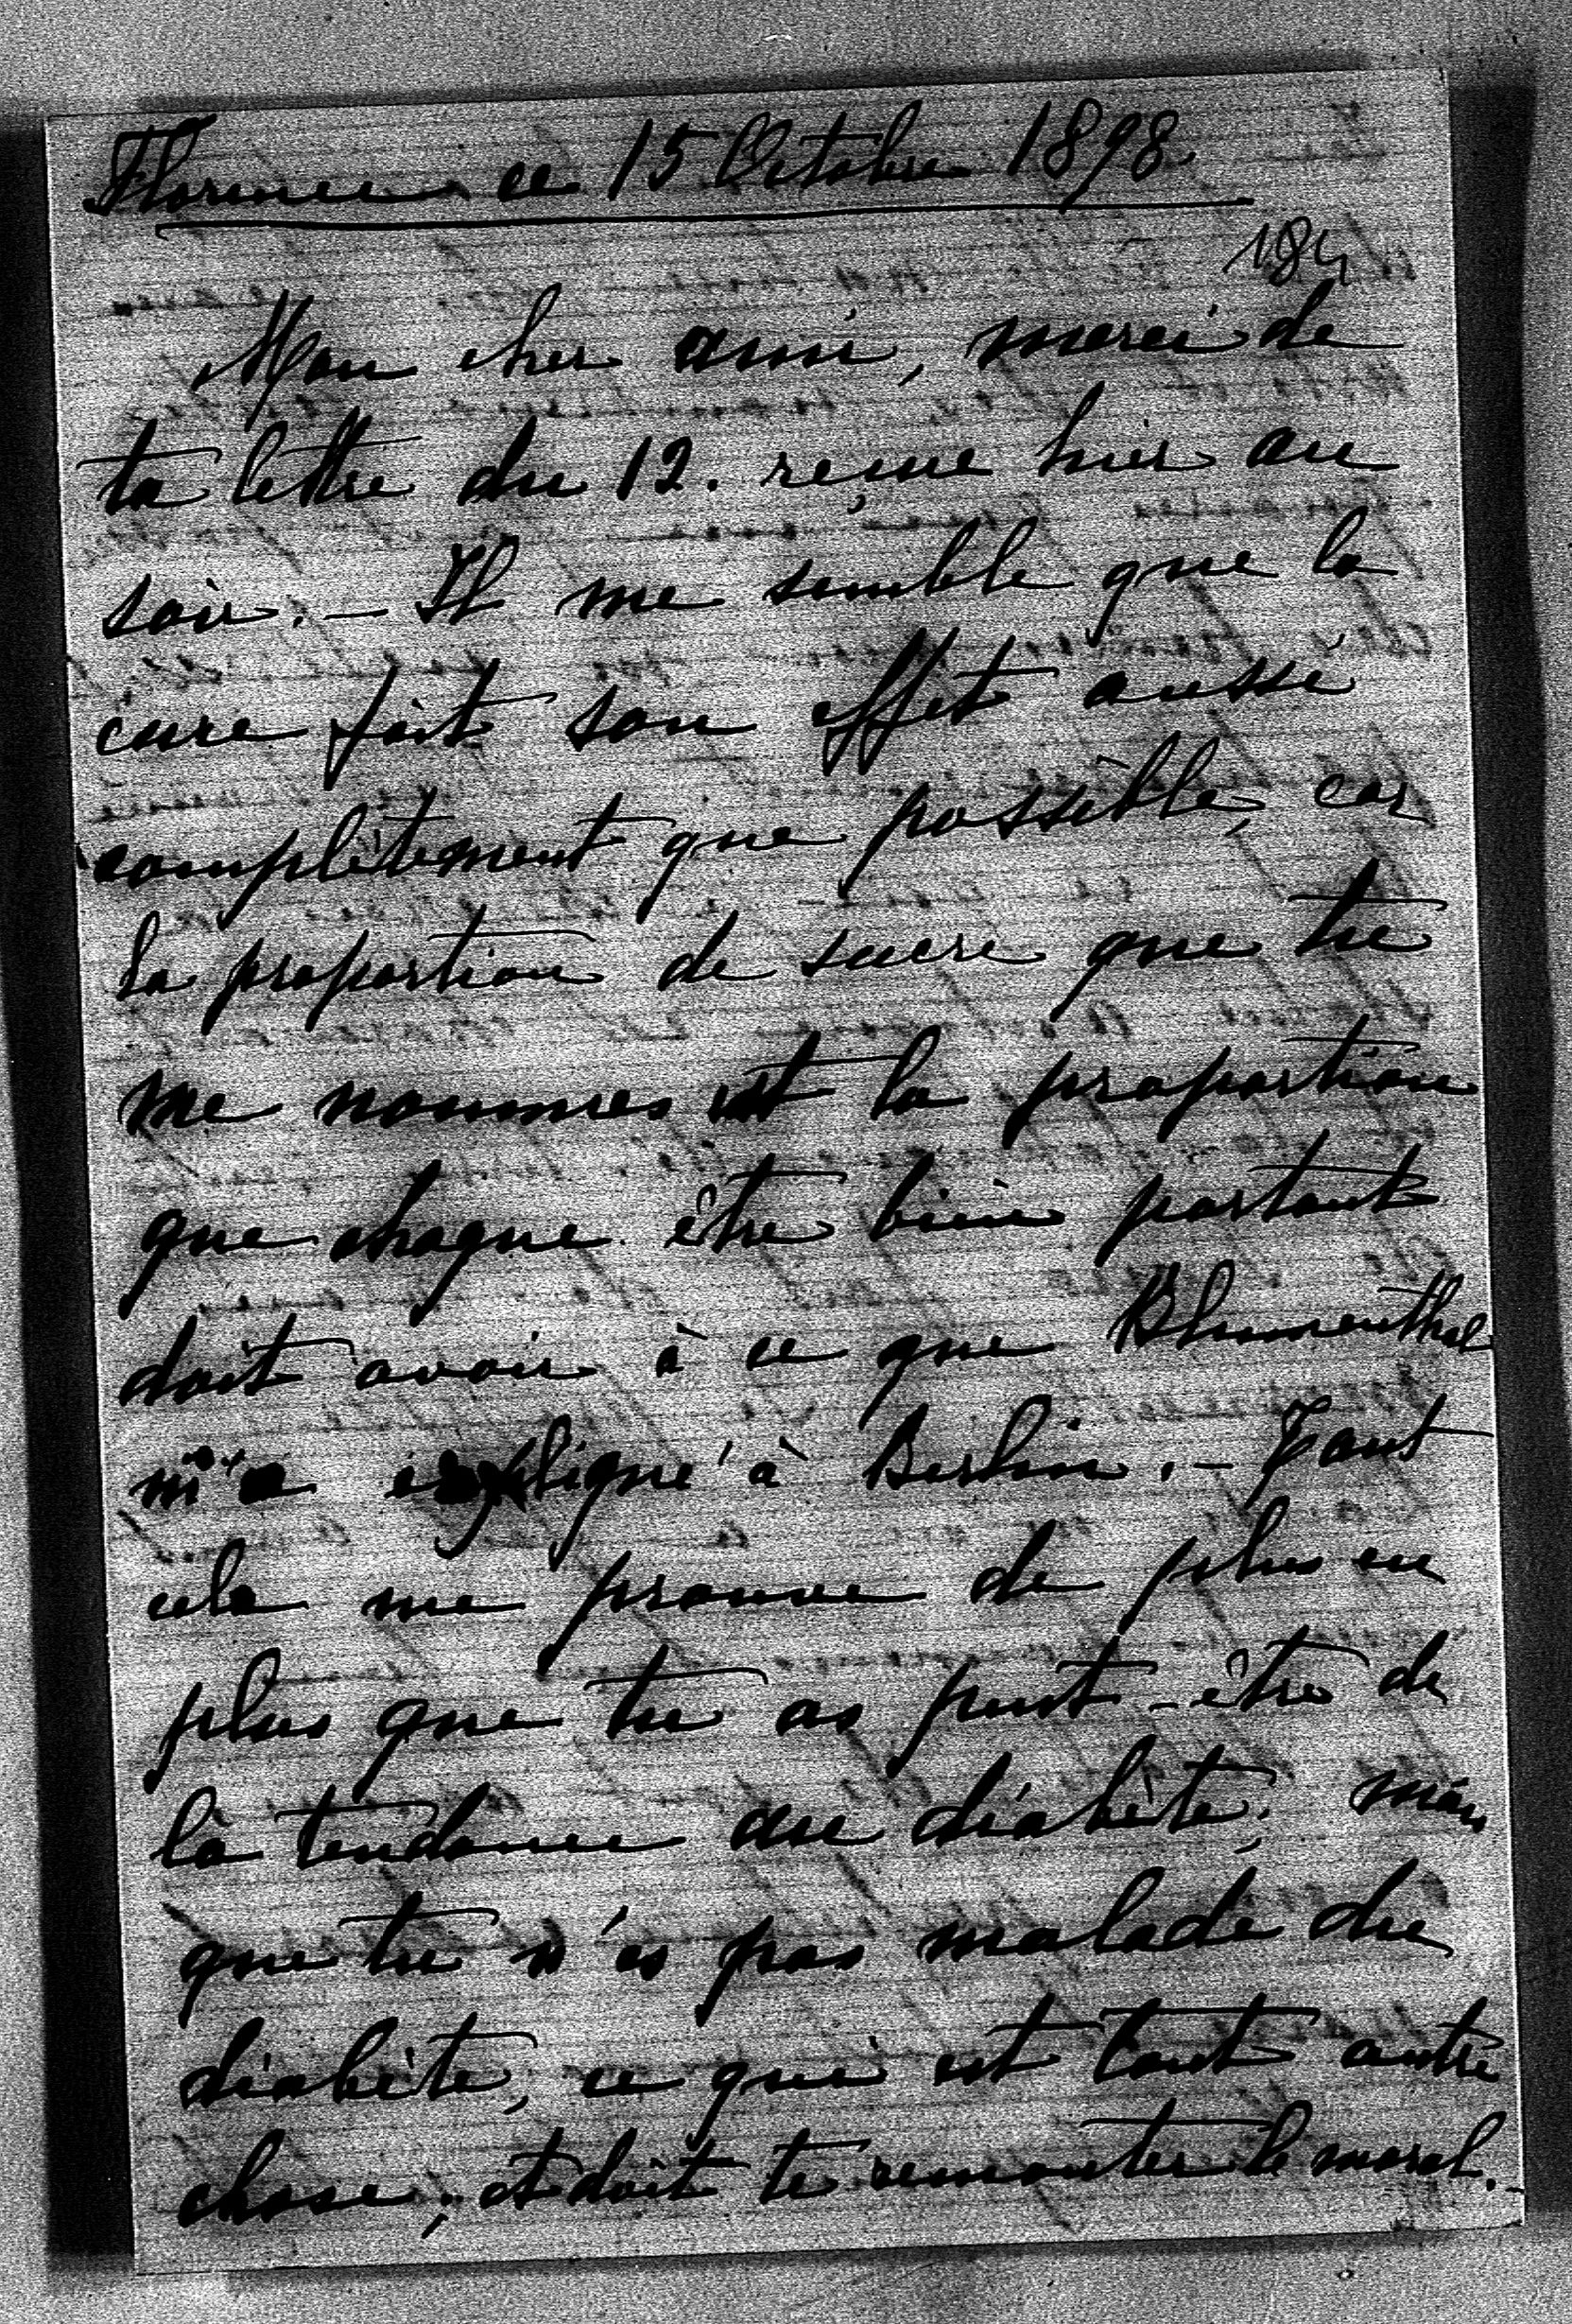 Florence ce 15 Octobre 1898.
184
Mon cher ami, merci de
ta lettre du 12. reçue hier au
soir. – Il me semble que la
cure fait son effet aussi
complètement que possible, car
la proportion de sucre que tu
me nommes est la proportion
que chaque être bien portant
doit avoir à ce que Blumenthal
m'a expliqué à Berlin. – Tout
cela me prouve de plus en
plus que tu as peut-être de
la tendance au diabète, mais
que tu n'es pas malade du
diabète, ce qui est tout autre
chose; et doit te remonter le moral. –